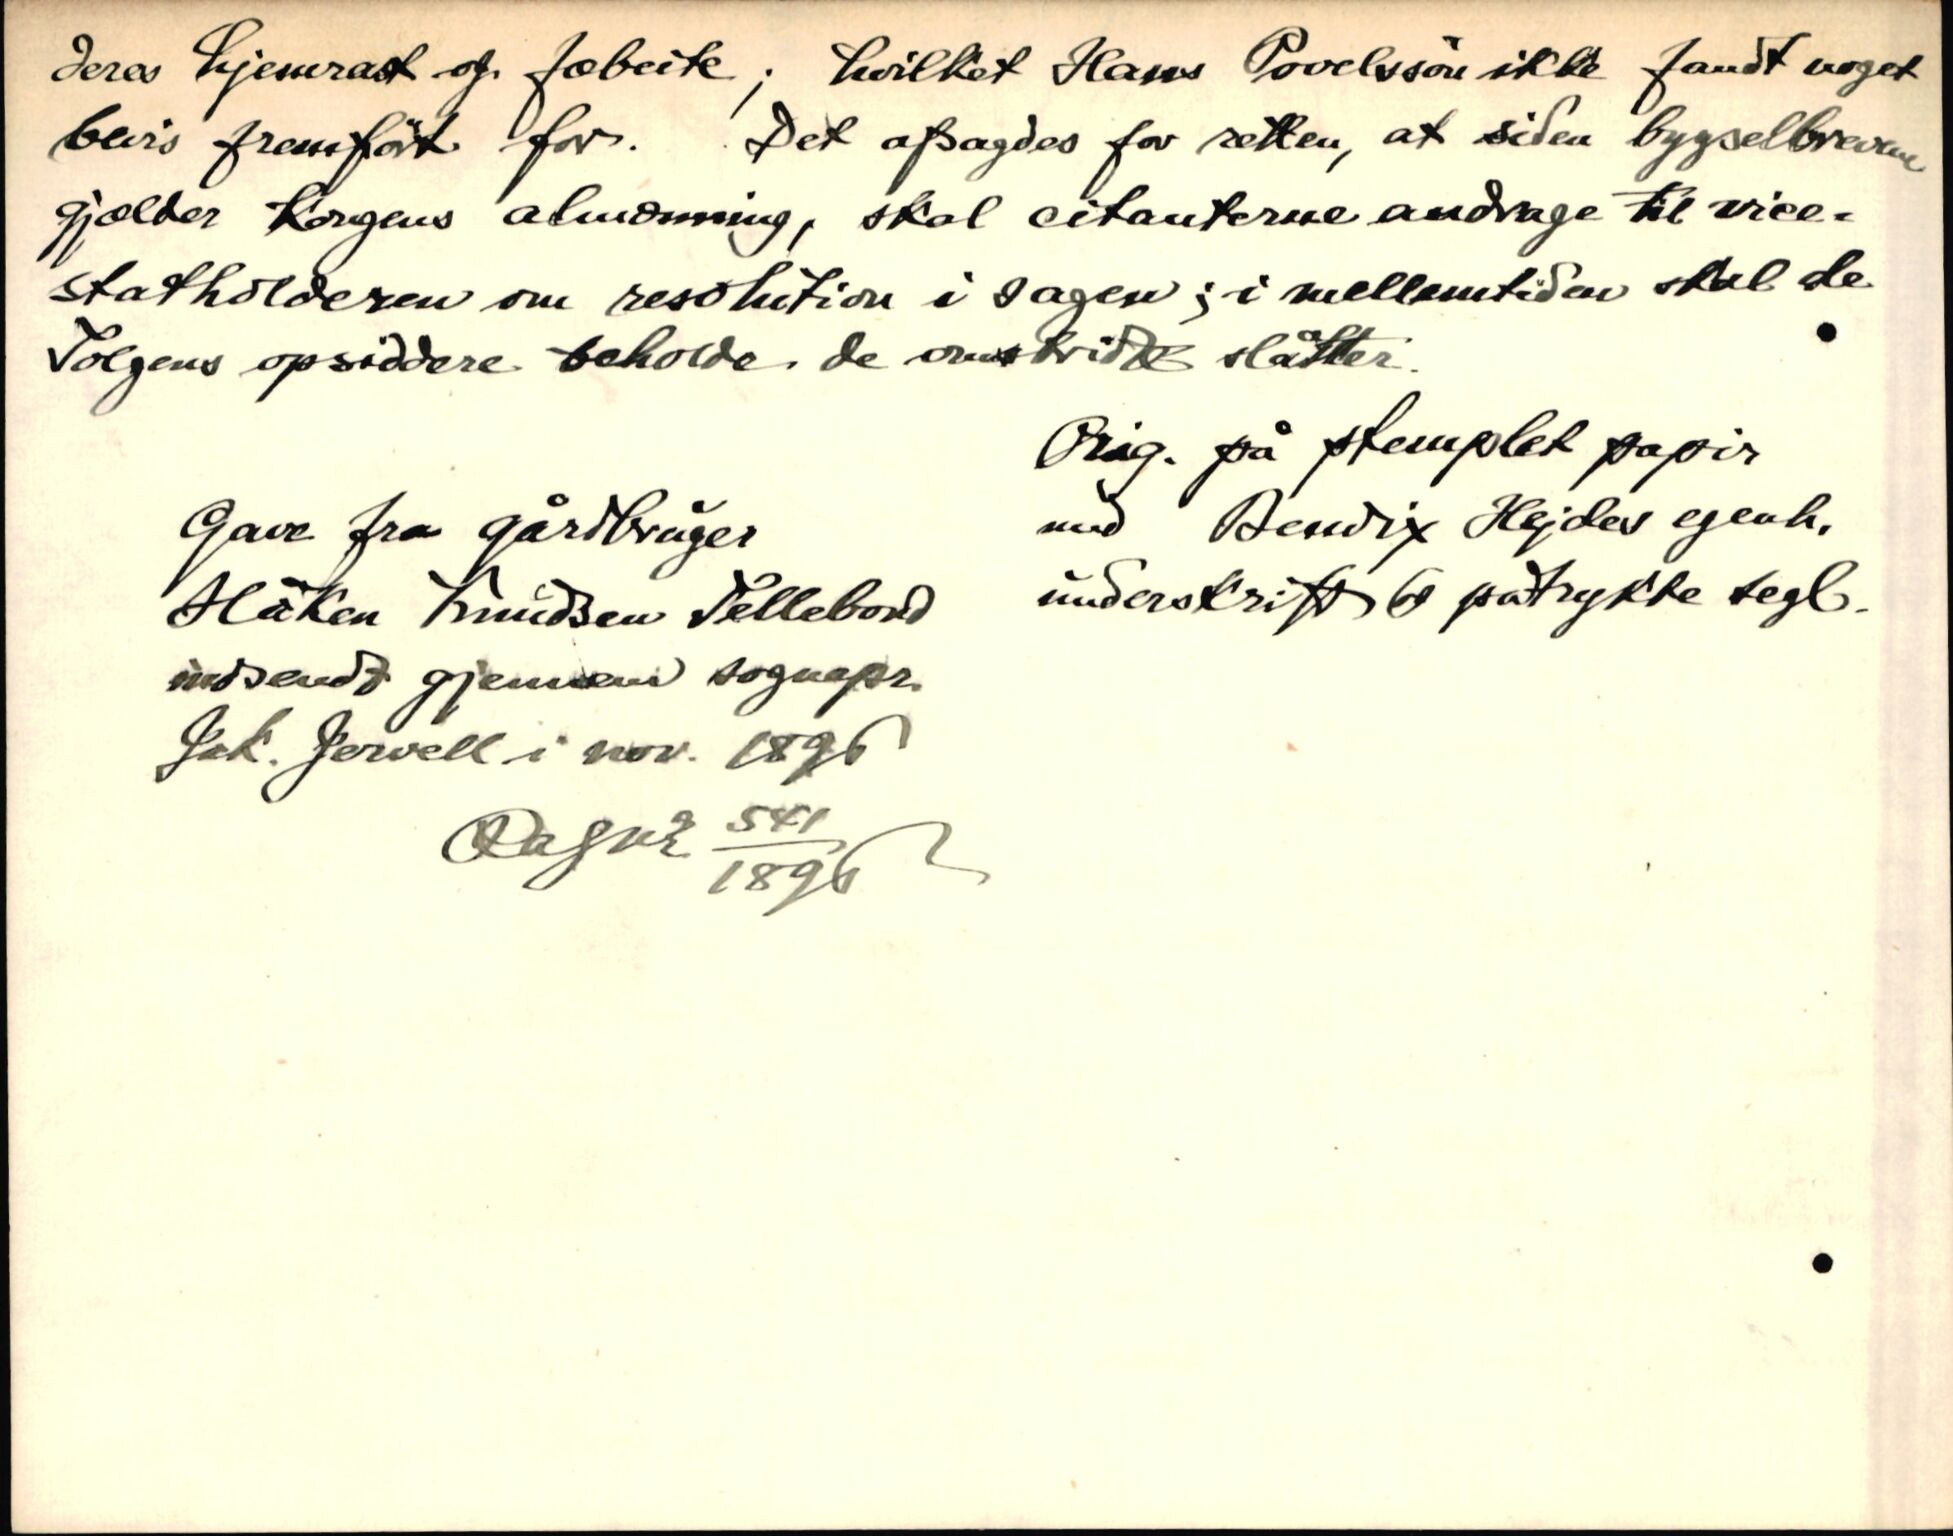 deres hjemrast og fæbeite; hvilket Hans Povelssön ikke fandt noget
bevis fremfört for. Det afsagdes for retten, at siden bygselbrevene
gjælder Kongens almænning, skal citanterne andrage til vice-
statholderen om resolution i sagen; i mellemtiden skal de
Tolgens opsiddere beholde de omstridte slåtter.
Orig. på stemplet papir
med Bendix Hejdes egenh.
underskrift & påtrykte segl.
Gave fra gårdbruger
Håken Knudsen Tellebond
indsendt gjennem sognepr.
Jak. Jervell i nov. 1896
541
1896